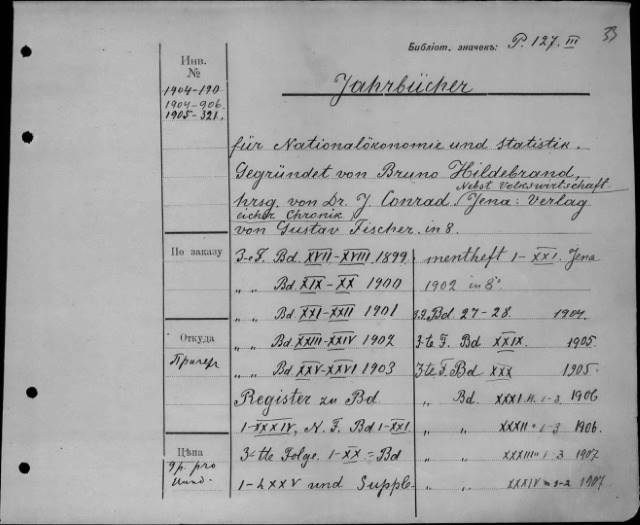 33
Библіот. значекъ: P. 127. III
Инв.
№
1904-190
1904-906.
1905-321.
Jahrbücher
für Nationalökonomie und Statistik.
Gegründet von Bruno Hildebrand,
Nebst Volkswirtschaft-
hrsg. von Dr. J. Conrad / Jena: Verlag
licher Chronik
von Gustav Fischer. in 8.
По заказу
Откуда
Цѣна
3-e F. Bd. XVII-XVIII 1899
„ „ Bd. XIX-XX 1900
„ „ Bd. XXI-XXII 1901
„ „ Bd. XXIII-XXIV 1902
„ „ Bd. XXV-XXVI 1903
Register zu Bd
1-XXXIV, N. F. Bd 1-XXI.
3-tte Folge. 1-XX = Bd
1-LXXV und Supple-
mentheft 1-XXI. Jena
1902 in 8°
Bd. 27-28. 1904.
3-te F. Bd XXIX. 1905.
3-te F. Bd XXX 1905.
„ Bd. XXXI H. 1-3 1906
„ „ XXXII 1-3 1906.
„ „ XXXIII 1-3 1907
„ „ XXXIV 1907.